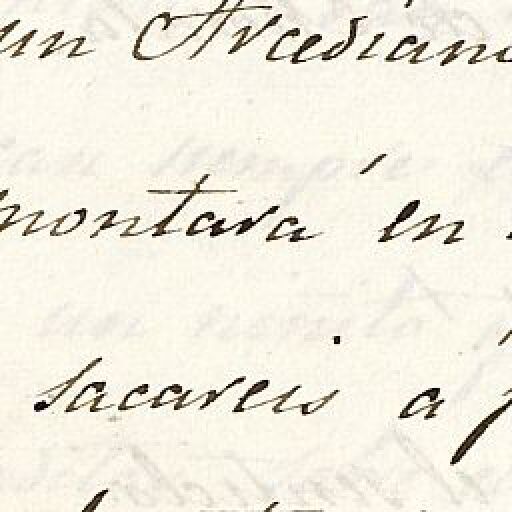 un Arcediano
montara en
sacareis a